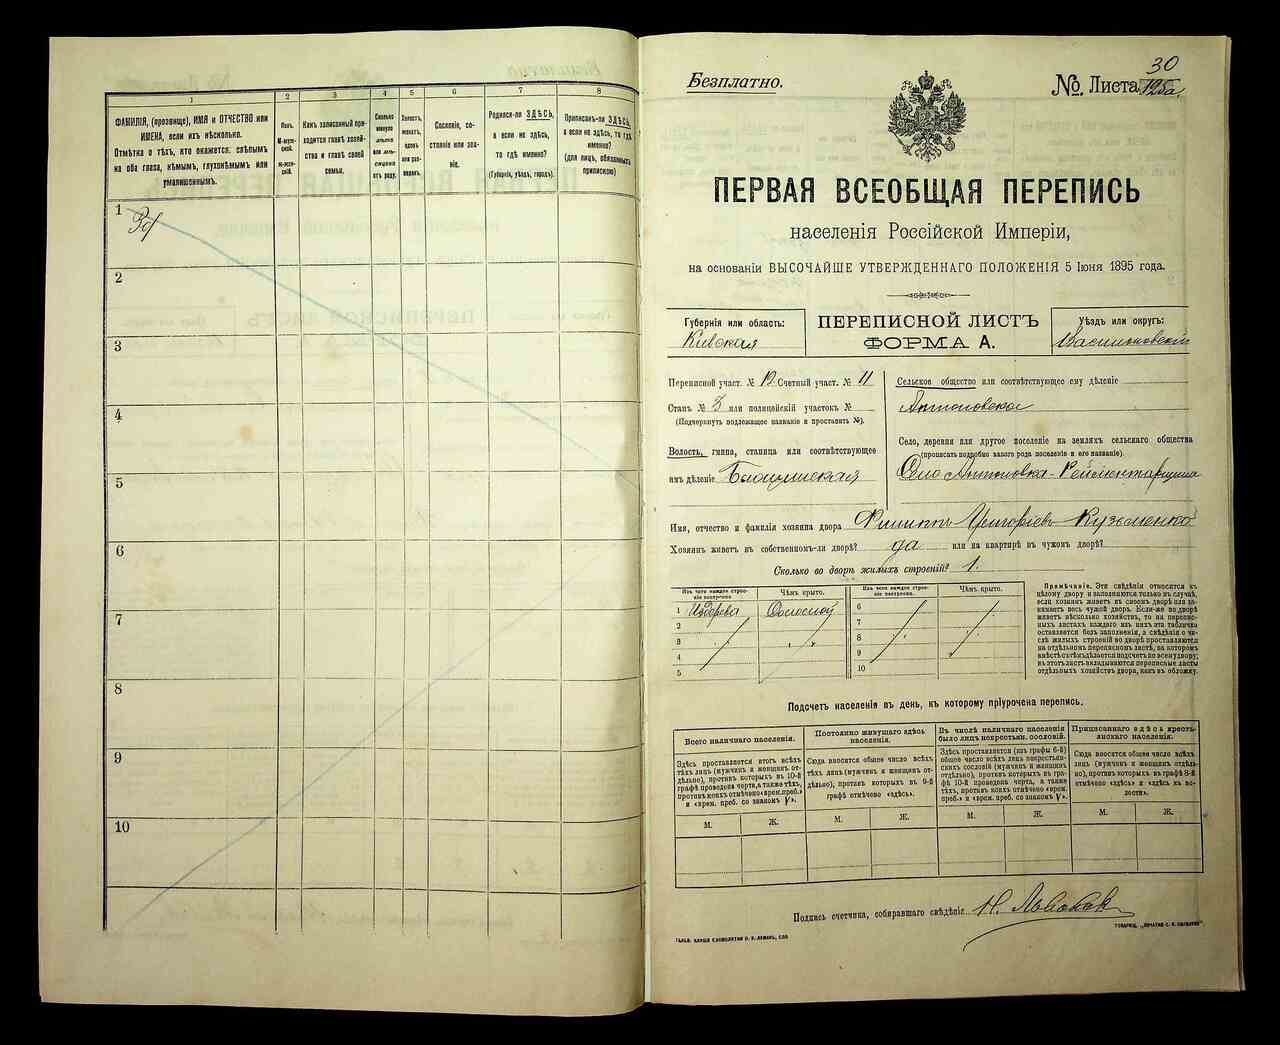 1
2
3
4
5
6
7
8
ФАМИЛІЯ, (прозвище), ИМЯ и ОТЧЕСТВО или
ИМЕНА, если ихъ нѣсколько.
Отмѣтка о тѣхъ, кто окажется: слѣпымъ
на оба глаза, нѣмымъ, глухонѣмымъ или
умалишеннымъ.
Полъ.
М-мужской.
Ж-женскій.
Какъ записанный приходится
главѣ хозяйства
и главѣ своей
семьи.
Сколько
минуло
лѣтъ
или мѣсяцевъ
отъ роду.
Холостъ,
женатъ,
вдовъ
или разведенъ.
Сословіе, состояніе
или званіе.
Родился-ли ЗДѢСЬ,
а если не здѣсь,
то гдѣ именно?
(Губернія, уѣздъ, городъ).
Приписанъ-ли ЗДѢСЬ,
а если не здѣсь, то гдѣ
именно?
(для лицъ, обязанныхъ
припискою)
1
2
3
4
5
6
7
8
9
10
Безплатно.
30
№ Листа 125а.
ПЕРВАЯ ВСЕОБЩАЯ ПЕРЕПИСЬ
населенія Россійской Имперіи,
на основаніи ВЫСОЧАЙШЕ УТВЕРЖДЕННАГО ПОЛОЖЕНІЯ 5 Іюня 1895 года.
Губернія или область:
Кіевская
ПЕРЕПИСНОЙ ЛИСТЪ
ФОРМА А.
Уѣздъ или округъ:
Васильковскій
Переписной участ. № 12 Счетный участ. № 11
Станъ № 3 или полицейскій участокъ №
(Подчеркнуть подлежащее названіе и проставить №).
Волость, гмина, станица или соотвѣтствующее
имъ дѣленіе
Сельское общество или соотвѣтствующее ему дѣленіе
Антоновское
Село, деревня или другое поселеніе на земляхъ сельскаго общества
(прописать подробно какого рода поселеніе и его названіе).
Село Антоновка-Рейментарщина
Имя, отчество и фамилія хозяина двора Филиппъ Григоріевъ Кузьменко
Хозяинъ живетъ въ собственномъ-ли дворѣ? да или на квартирѣ въ чужомъ дворѣ?
Сколько во дворѣ жилыхъ строеній? 1.
Изъ чего каждое строеніе построено
Чѣмъ крыто.
Изъ чего каждое строеніе построено
Чѣмъ крыто.
1 Изъ дерева Соломой
2
3
4
5
6
7
8
9
10
Примѣчаніе. Эти свѣдѣнія относятся къ
цѣлому двору и заполняются только въ случаѣ,
если хозяинъ живетъ въ своемъ дворѣ или занимаетъ
весь чужой дворъ. Если-же во дворѣ
живетъ нѣсколько хозяйствъ, то на переписныхъ
листахъ каждаго изъ нихъ эта табличка
оставляется безъ заполненія, а свѣдѣнія о числѣ
жилыхъ строеній во дворѣ проставляются
на отдѣльномъ переписномъ листѣ, на которомъ
вмѣстѣ съ тѣмъ дѣлается подсчетъ по всему двору;
въ этотъ листъ вкладываются переписные листы
отдѣльныхъ хозяйствъ двора, какъ въ обложку.
Подсчетъ населенія въ день, къ которому пріурочена перепись.
Всего наличнаго населенія.
Здѣсь проставляется итогъ всѣхъ
тѣхъ лицъ (мужчинъ и женщинъ отдѣльно),
противъ которыхъ въ 10-й
графѣ проведена черта, а также тѣхъ,
противъ коихъ отмѣчено «врем. преб.»
и «врем. преб. со знакомъ V».
Постоянно живущаго здѣсь
населенія.
Сюда вносится общее число всѣхъ
тѣхъ лицъ (мужчинъ и женщинъ отдѣльно),
противъ которыхъ въ 9-й
графѣ отмѣчено «здѣсь».
Въ числѣ наличнаго населенія
было лицъ некрестьян. сословій.
Здѣсь проставляется (изъ графы 6-й)
общее число всѣхъ лицъ некрестьянскихъ
сословій (мужчинъ и женщинъ
отдѣльно), противъ которыхъ въ графѣ
10-й проведена черта, а также
тѣхъ, противъ коихъ отмѣчено «врем.
преб.» и «врем. преб. со знакомъ V».
Приписаннаго здѣсь крестьянскаго
населенія.
Сюда вносится общее число всѣхъ
лицъ (мужчинъ и женщинъ отдѣльно),
противъ которыхъ въ графѣ 8-й
отмѣчено «здѣсь» и «здѣсь къ волости».
М.
Ж.
М.
Ж.
М.
Ж.
М.
Ж.
Подпись счетчика, собиравшаго свѣдѣнія